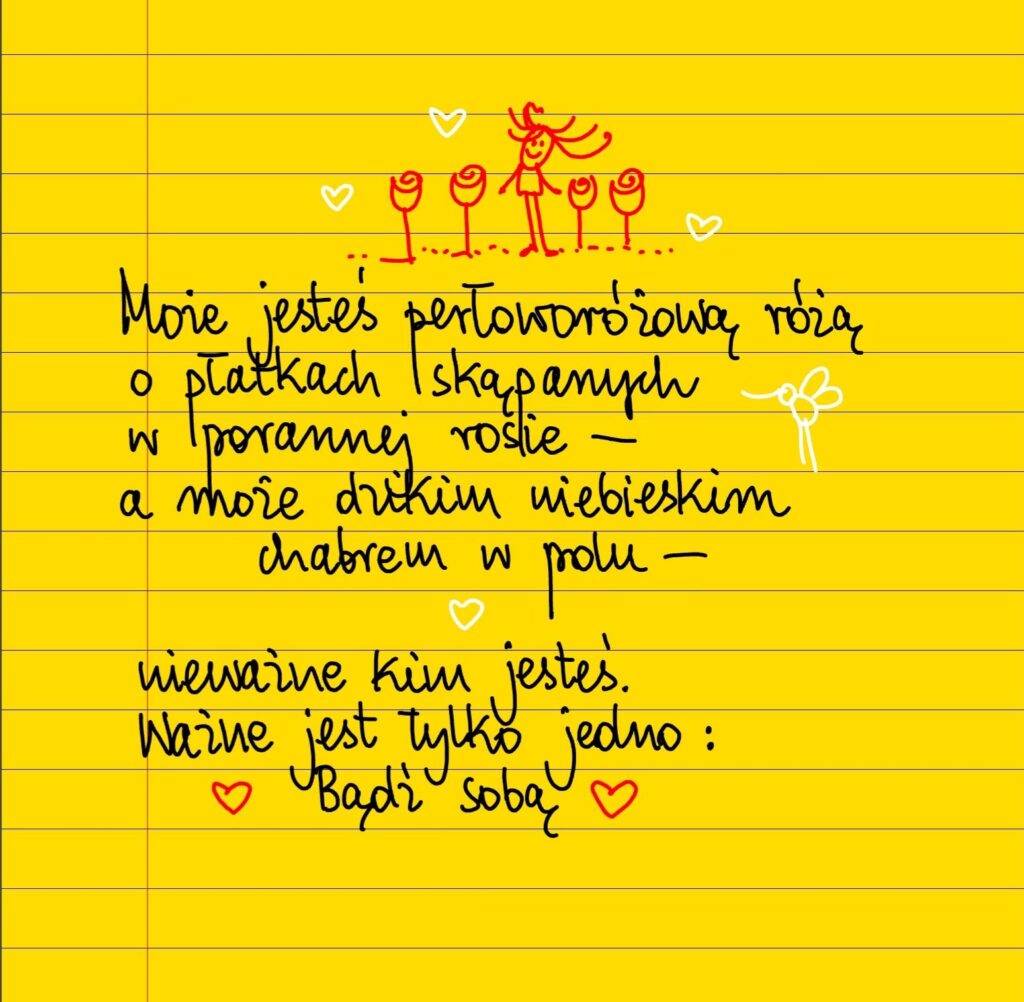 Może jesteś perłoworóżową różą
o płatkach skąpanych
w porannej rosie –
a może dzikim niebieskim
chabrem w polu –
nieważne kim jesteś.
Ważne jest tylko jedno:
Bądź sobą